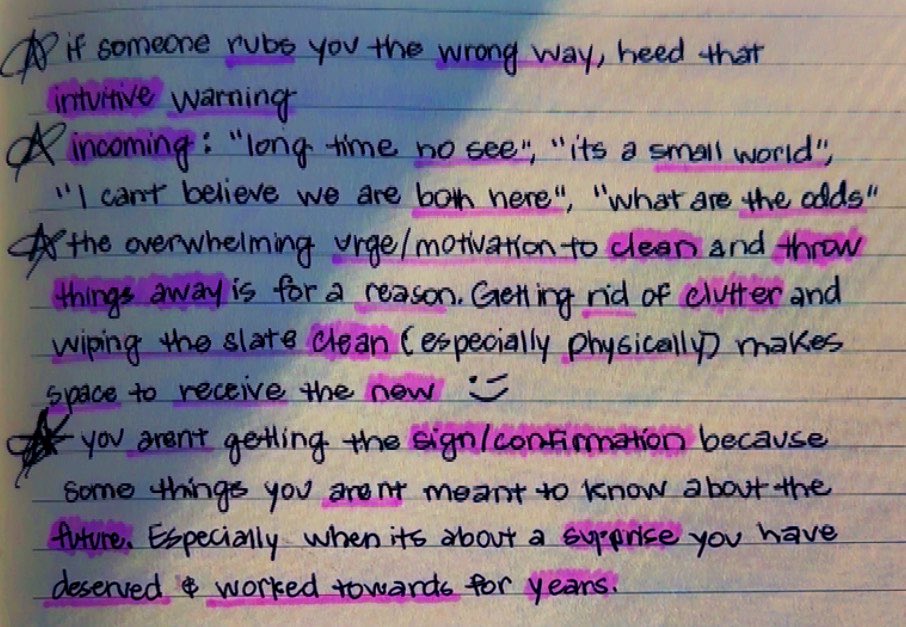 ☆ if someone rubs you the wrong way, heed that
intuitive warning
☆ incoming: "long time no see", "its a small world",
"I cant believe we are both here", "what are the odds"
☆ the overwhelming urge/motivation to clean and throw
things away is for a reason. Getting rid of clutter and
wiping the slate clean (especially physically) makes
space to receive the new :)
☆ you arent getting the sign/confirmation because
some things you arent meant to know about the
future. Especially when its about a surprise you have
deserved & worked towards for years.